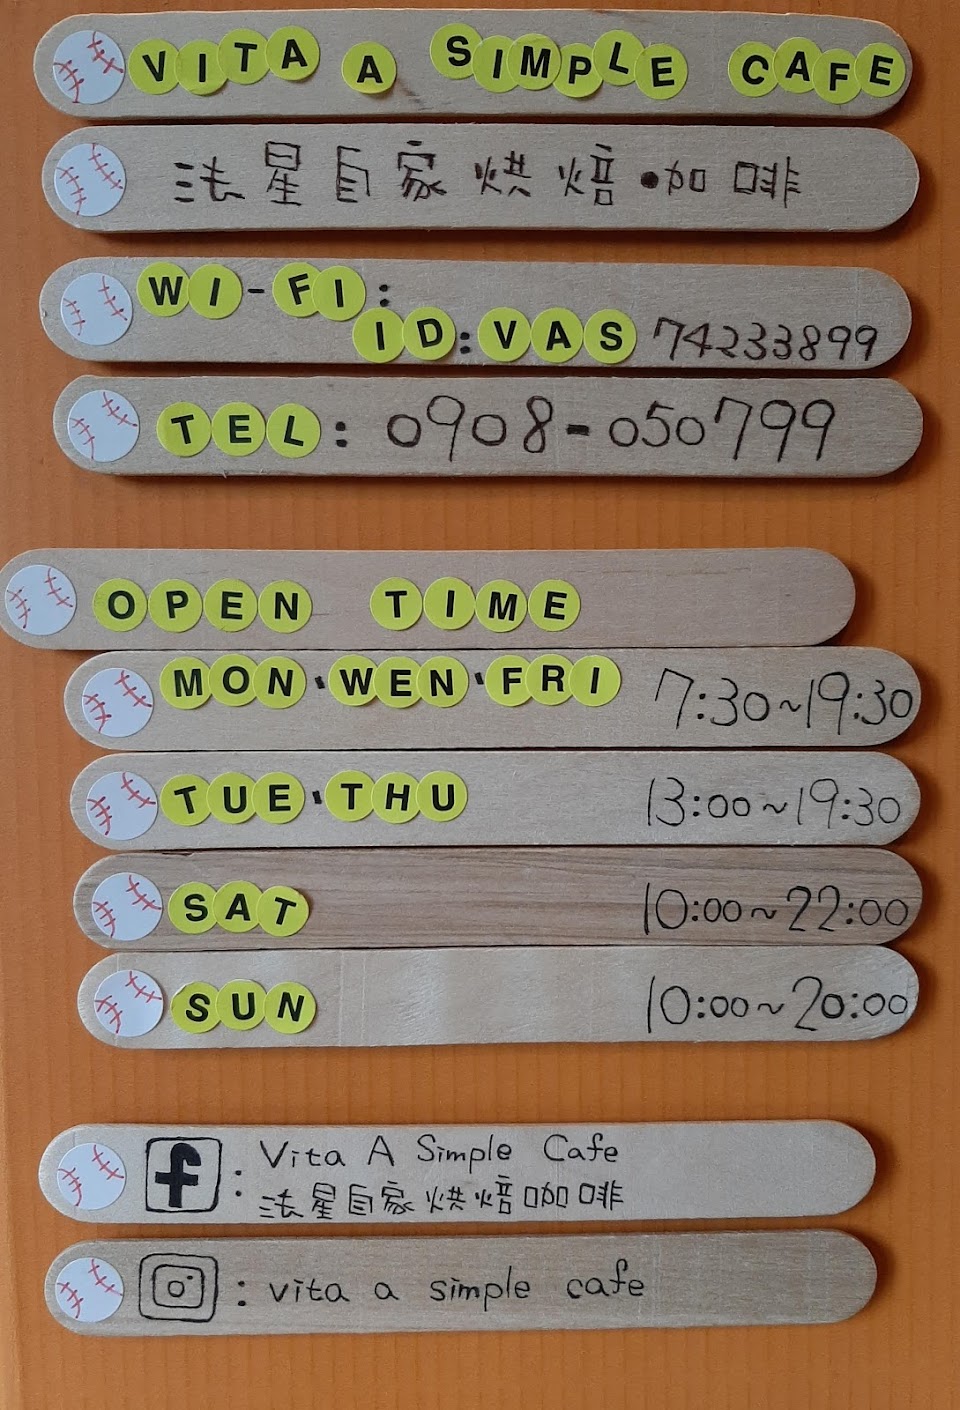 VITA A SIMPLE CAFE
法星自家烘焙•咖啡
WI-FI:
ID:VAS 74233899
TEL: 0908-050799
OPEN TIME
MON·WEN·FRI 7:30~19:30
TUE·THU 13:00~19:30
SAT 10:00~22:00
SUN 10:00~20:00
f: Vita A Simple Cafe
法星自家烘焙咖啡
: vita a simple cafe